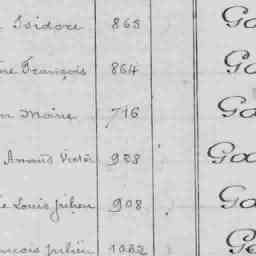 Isidore 865 Go
François 864 Go
Moïse 716 Go
Amand Victor 928 God
Louis Julien 908 Go
François Julien 1032 Go